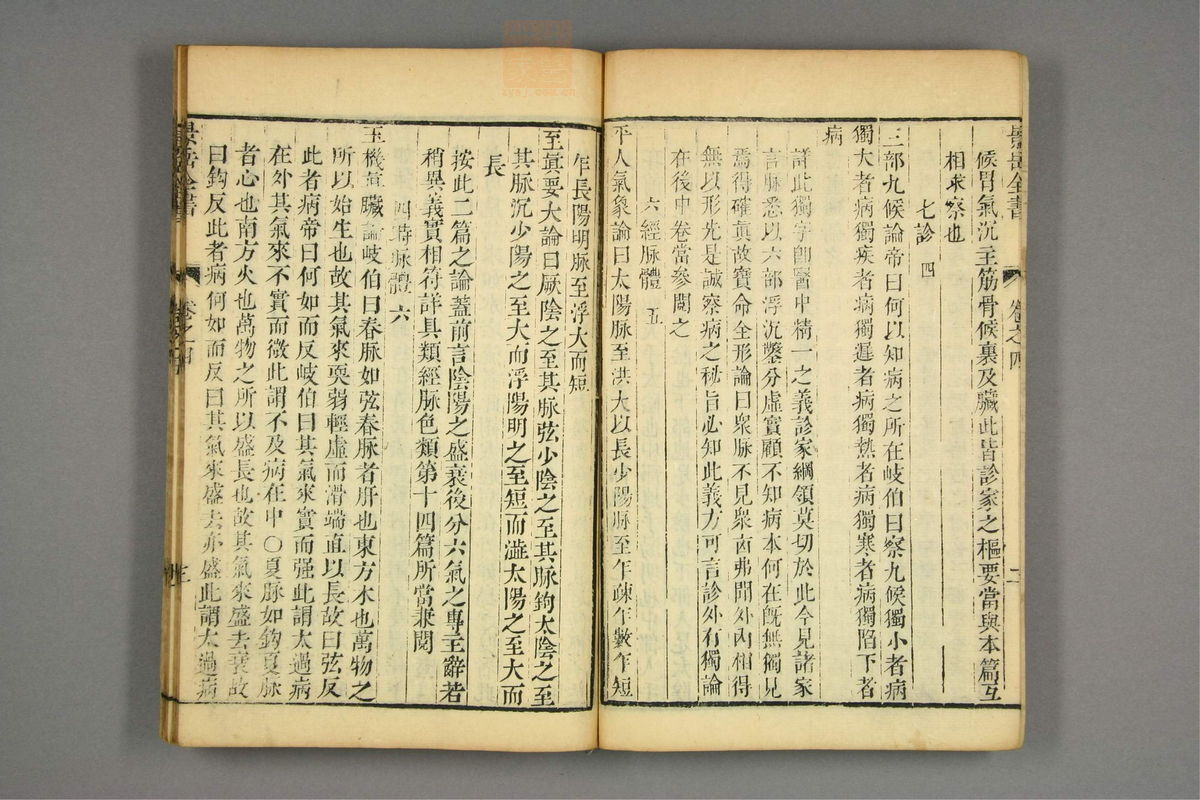 景岳全書 卷之四 二
候胃氣沉主筋骨候裏及臟此皆診家之樞要當與本篇互
相求察也
七診 四
三部九候論帝曰何以知病之所在岐伯曰察九候獨小者病
獨大者病獨疾者病獨遲者病獨熱者病獨寒者病獨陷下者
病
詳此獨字卽醫中精一之義診家綱領莫切於此今見諸家
言脉悉以六部浮沉鑿分虛實顧不知病本何在旣無獨見
焉得確眞故寶命全形論曰衆脉不見衆凶弗聞外內相得
無以形先是誠察病之秘旨必知此義方可言診外有獨論
在後中卷當參閱之
六經脉體 五
平人氣象論曰太陽脉至洪大以長少陽脉至乍疎乍數乍短
乍長陽明脉至浮大而短
至眞要大論曰厥陰之至其脉弦少陰之至其脉鉤太陰之至
其脉沉少陽之至大而浮陽明之至短而澁太陽之至大而
長
按此二篇之論蓋前言陰陽之盛衰後分六氣之專主辭若
稍異義實相符詳具類經脉色類第十四篇所當兼閱
四時脉體 六
玉機眞臟論岐伯曰春脉如弦春脉者肝也東方木也萬物之
所以始生也故其氣來耎弱輕虛而滑端直以長故曰弦反
此者病帝曰何如而反岐伯曰其氣來實而强此謂太過病
在外其氣來不實而微此謂不及病在中○夏脉如鉤夏脉
者心也南方火也萬物之所以盛長也故其氣來盛去衰故
曰鉤反此者病何如而反曰其氣來盛去亦盛此謂太過病
景岳全書 卷之四 三